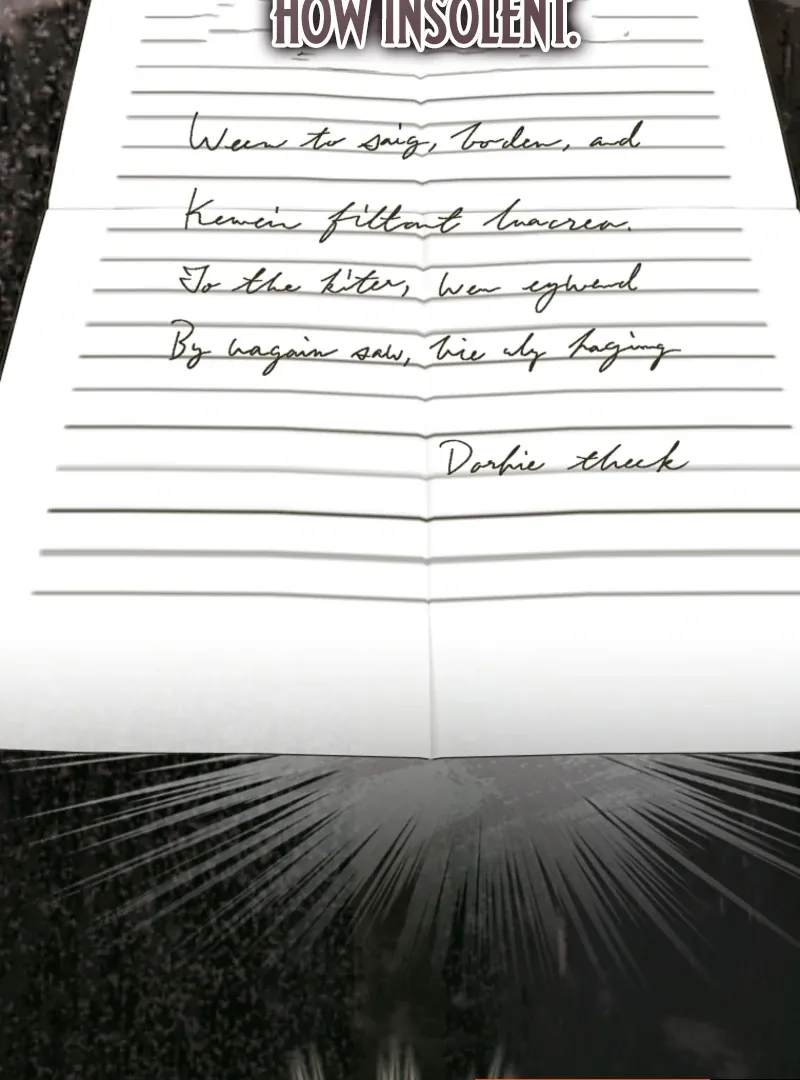 HOW INSOLENT.
Ween to saig, boden, and
Kewein filtont luacrea.
To the kiter, wen eghwend
By wagain saw, bie uly haging
Dorhie theck